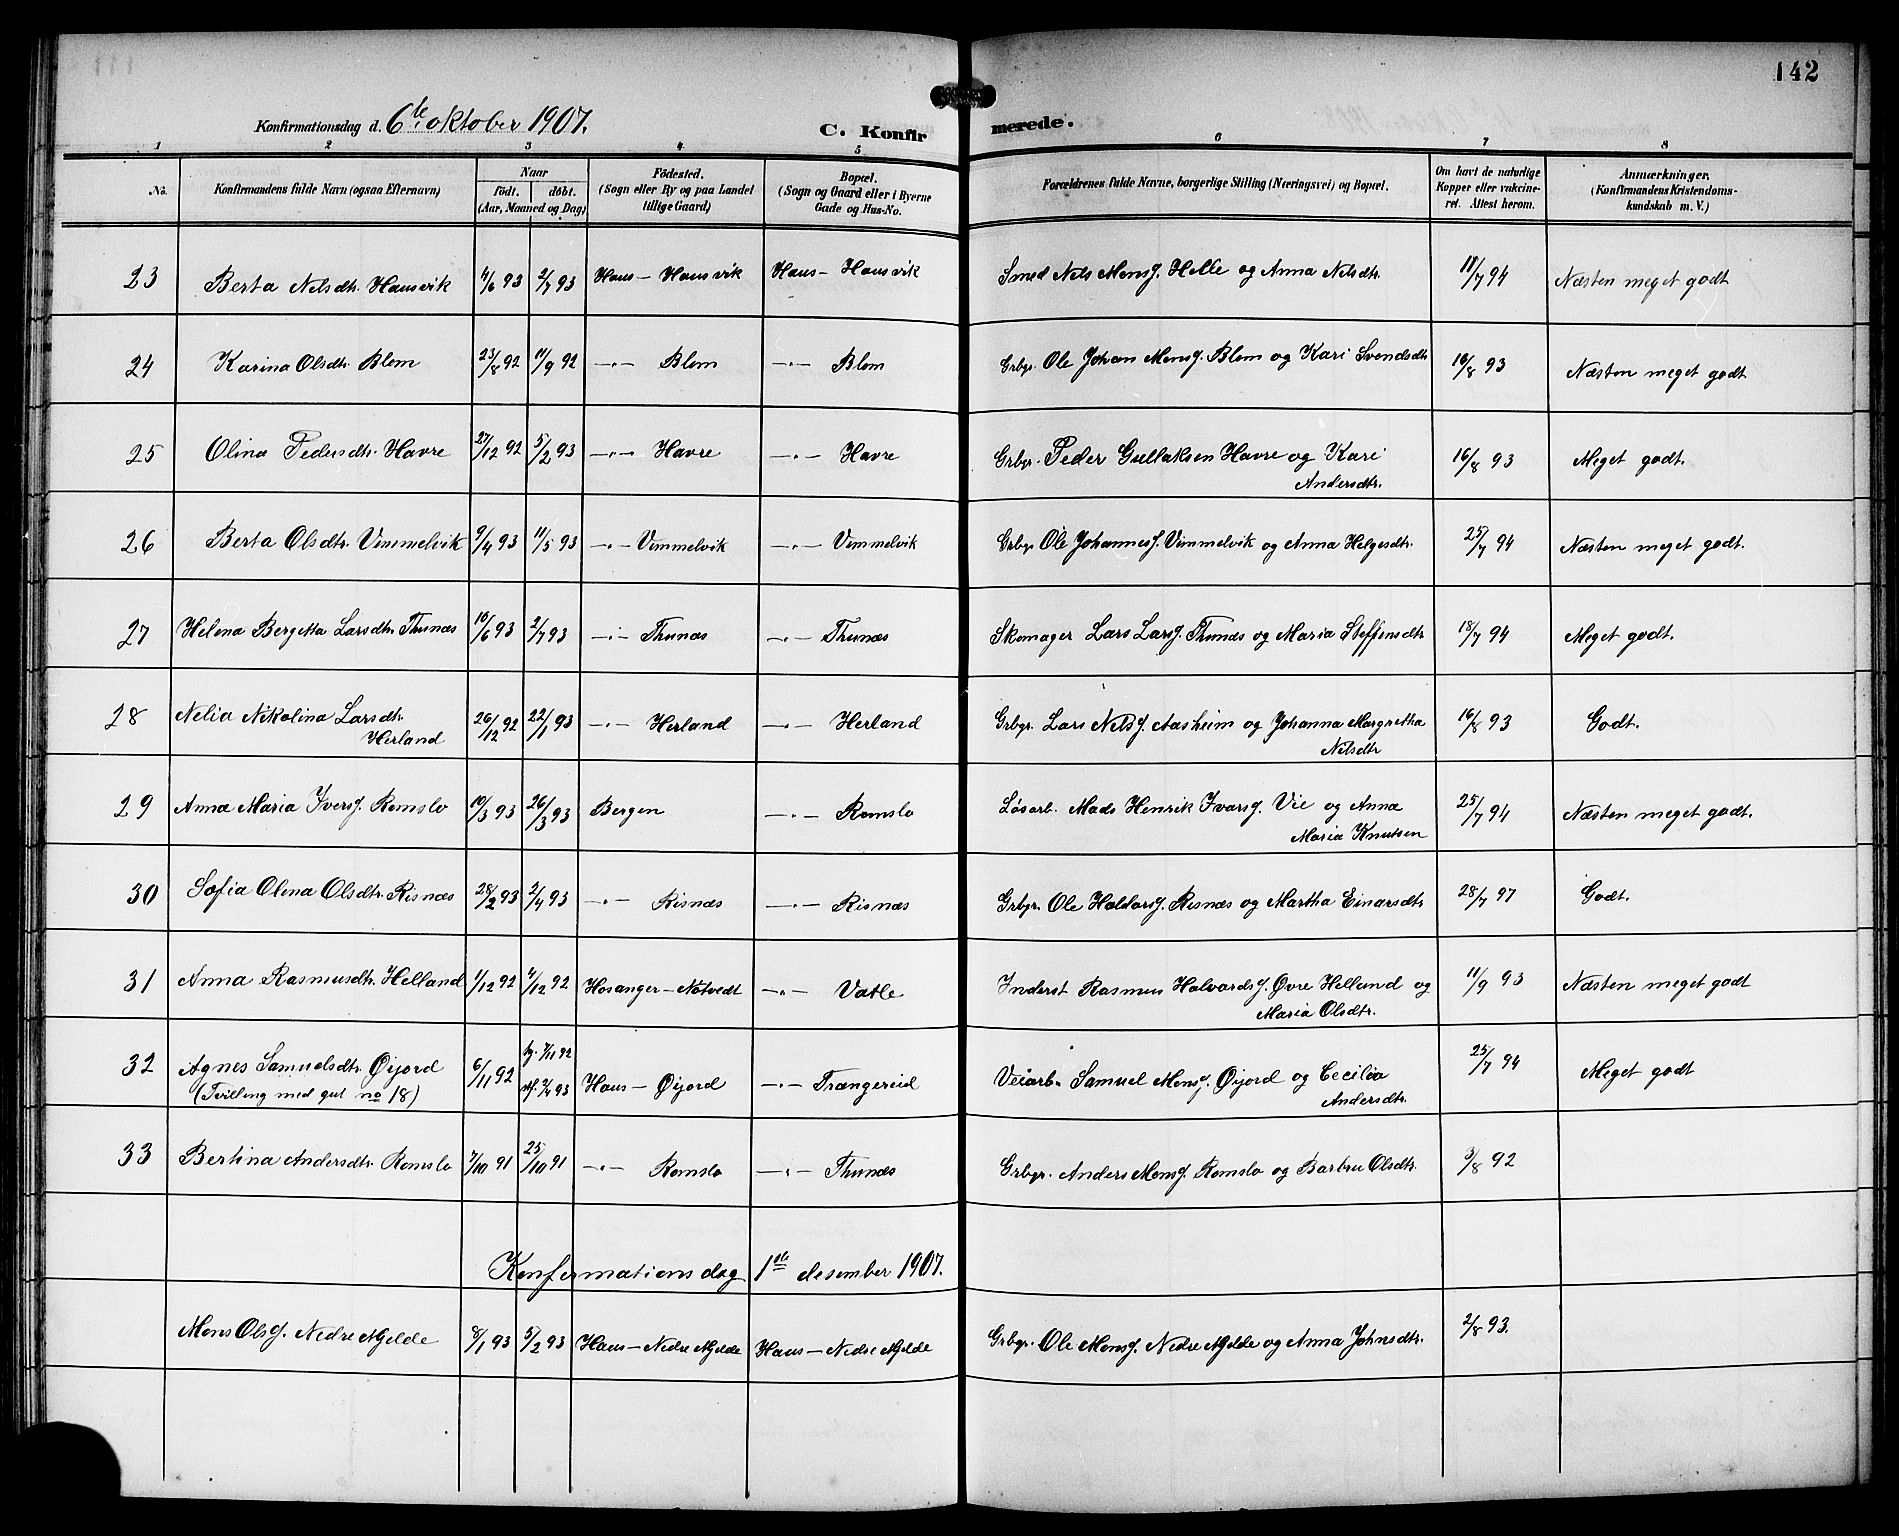 142
Konfirmationsdag d. 6te oktober 1907.
C. Konfirmerede.
1 2 3 4 5 6 7 8
No.
Konfirmandens fulde Navn (ogsaa Efternavn)
Naar
født. døbt.
(Aar, Maaned og Dag)
Fødested.
(Sogn eller By og paa Landet
tillige Gaard)
Bopæl.
(Sogn og Gaard eller i Byerne
Gade og Hus-No.
Forældrenes fulde Navne, borgerlige Stilling (Næringsvei) og Bopæl.
Om havt de naturlige
Kopper eller vakcine-
ret. Attest herom.
Anmærkninger.
(Konfirmandens Kristendoms-
kundskab m. V.)
23 Berta Nilsdtr. Hausvik 4/6 93 2/7 93 Haus - Hausvik Haus - Hausvik Smed Nils Monss. Helle og Anna Nilsdtr. 18/7 94 Næsten meget godt
24 Karina Olsdtr. Blom 23/8 92 11/9 92 -"- Blom -"- Blom Grbgr. Ole Johan Monss. Blom og Kari Svendsdtr 16/8 93 Næsten meget godt
25 Olina Pedersdtr. Havre 27/12 92 5/2 93 -"- Havre -"- Havre Grbgr. Peder Gullaksen Havre og Kari
Andersdtr. 16/8 93 Meget godt.
26 Berta Olsdtr. Vimmelvik 9/4 93 11/5 93 -"- Vimmelvik -"- Vimmelvik Grbgr Ole Johanness. Vimmelvik og Anna Helgesdtr. 25/7 94 Næsten meget godt.
27 Helena Bergetta Larsdtr. Thunæs 10/6 93 2/7 93 -"- Thunæs -"- Thunæs Skomager Lars Larss. Thunæs og Maria Steffensdtr 18/7 94 Meget godt.
28 Nelia Nikolina Larsdtr.
Herland 26/12 92 22/1 93 -"- Herland -"- Herland Grbgr. Lars Nilss. Aasheim og Johanna Margretha
Nilsdtr 16/8 93 Godt.
29 Anna Maria Ivers. Romslo 10/3 93 26/3 93 Bergen -"- Romslo Løsarb. Mads Henrik Ivars. Vie og Anna
Maria Knutsen 25/7 94 Næsten meget godt.
30 Sofia Olina Olsdtr. Risnæs 28/2 93 2/4 93 -"- Risnæs -"- Risnæs Grbgr. Ole Haldors. Risnæs og Martha Einarsdtr 28/7 97 Godt.
31 Anna Rasmusdtr. Helland 1/12 92 4/12 92 Hosanger - Notvedt -"- Vatle Inderst Rasmus Halvards. Øvre Helland og
Maria Olsdtr. 11/9 93 Næsten meget godt
32 Agnes Samuelsdtr. Øijord
(Tvilling med gut no 18) 6/11 92 7/11 92
2/4 93 Haus - Øijord -"- Trængereid Veiarb. Samuel Monss. Øijord og Cecilia
Andersdtr. 25/7 94 Meget godt
33 Bertina Andersdtr. Romslo 7/10 91 25/10 91 -"- Romslo -"- Thunæs Grbgr. Anders Monss. Romslo og Barbru Olsdtr. 3/8 92
Konfirmationsdag 1ste desember 1907.
Mons Olss. Nedre Mjelde 8/1 93 5/2 93 Haus - Nedre Mjelde Haus - Nedre Mjelde Grbgr. Ole Monss. Nedre Mjelde og Anna Johnsdtr. 2/8 93.